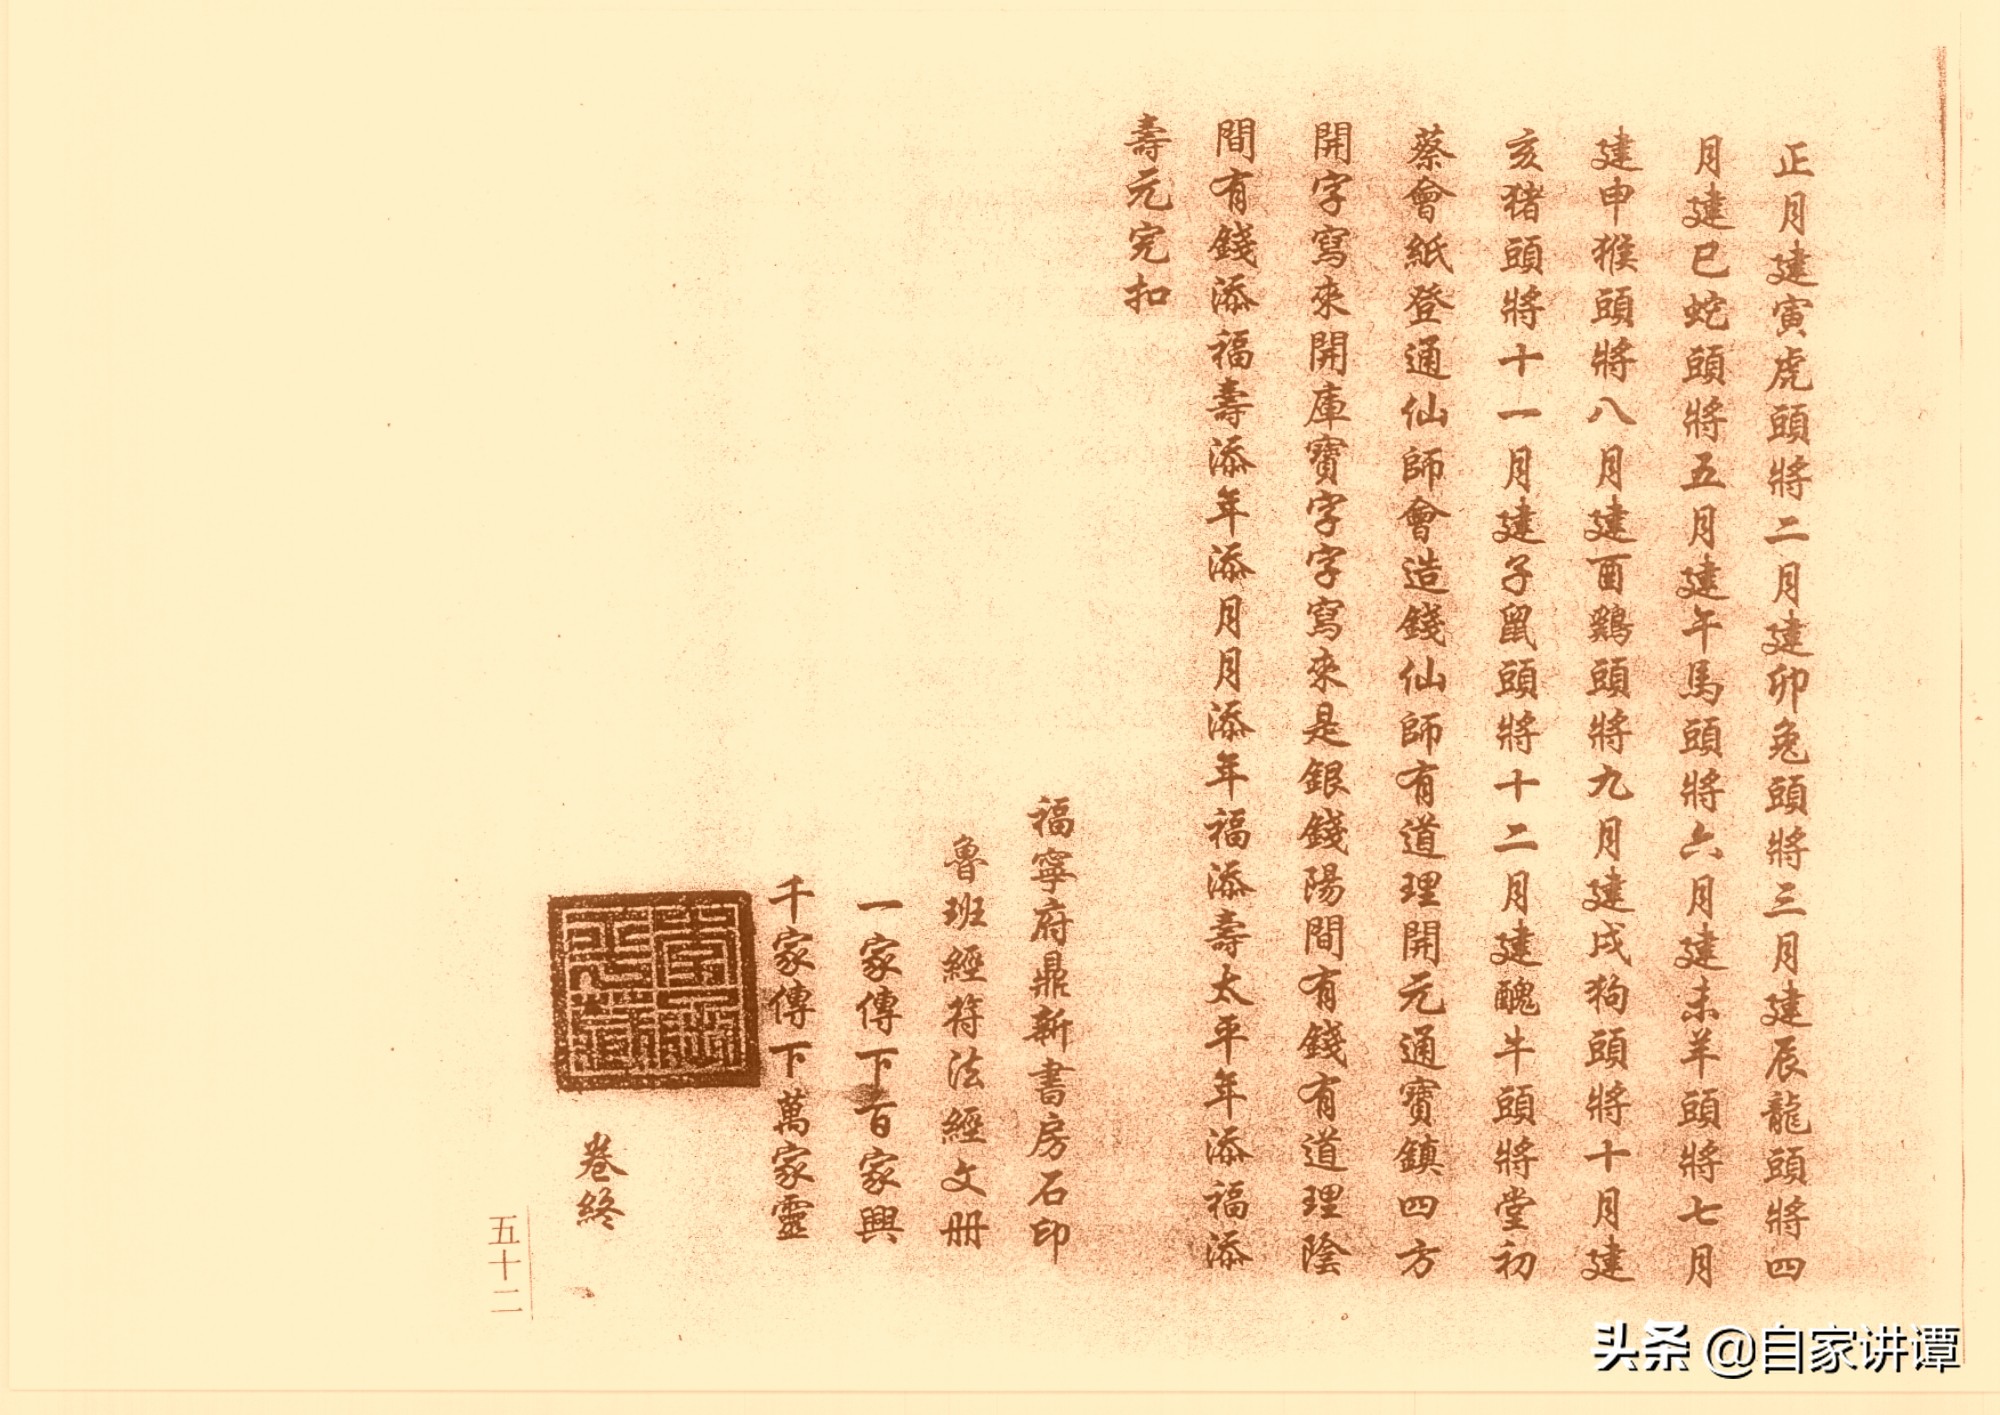 正月建寅虎頭將二月建卯兔頭將三月建辰龍頭將四
月建巳蛇頭將五月建午馬頭將六月建未羊頭將七月
建申猴頭將八月建酉鷄頭將九月建戌狗頭將十月建
亥猪頭將十一月建子鼠頭將十二月建醜牛頭將堂初
蔡會紙登通仙師會造錢仙師有道理開元通寶鎮四方
開字寫來開庫寶字字寫來是銀錢陽間有錢有道理陰
間有錢添福壽添年添月月添年福添壽太平年添福添
壽元完扣
福寧府鼎新書房石印
魯班經符法經文册
一家傳下百家興
千家傳下萬家靈
卷終
五十二
头条 @自家讲谭